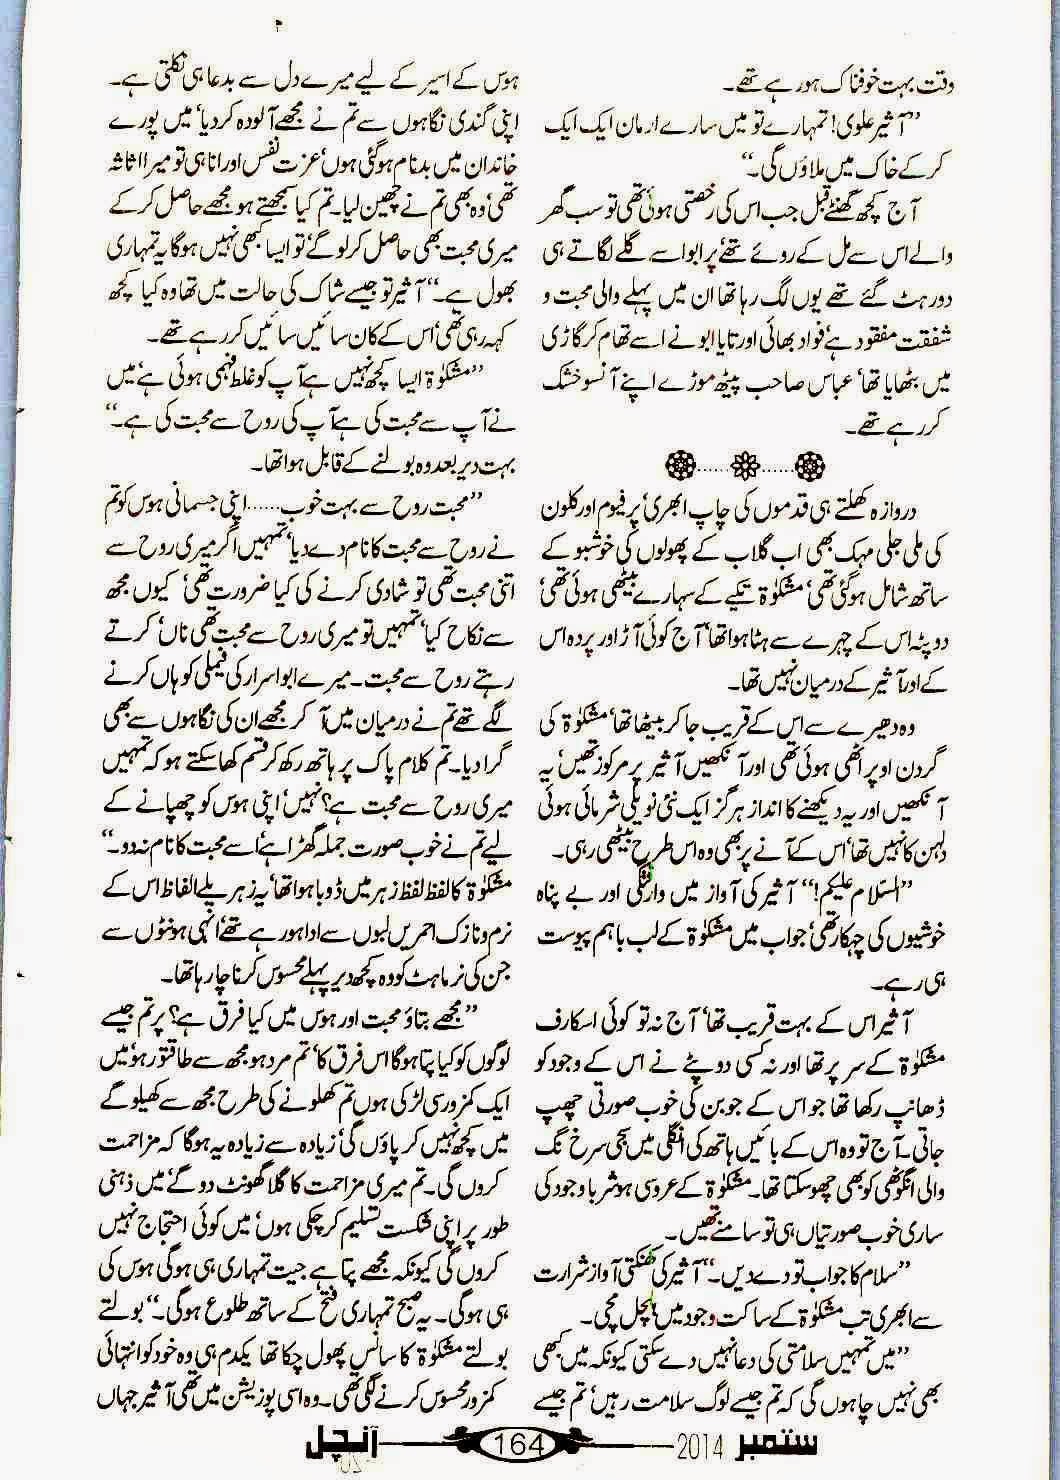 وقت بہت خوفناک ہورہے تھے۔
”آشیر علوی! تمہارے تو میں سارے ارمان ایک ایک
کرکے خاک میں ملاؤں گی۔“
آج کچھ گھنٹے قبل جب اس کی رخصتی ہوئی تھی تو سب گھر
والے اس سے مل کے روئے تھے‘ پر ابو اسے گلے لگاتے ہی
دور ہٹ گئے تھے یوں لگ رہا تھا ان میں پہلے والی محبت و
شفقت مفقود ہے‘ فواد بھائی اور تایا ابو نے اسے تھام کر گاڑی
میں بٹھایا تھا‘ عباس صاحب پیٹھ موڑے اپنے آنسو خشک
کررہے تھے۔
دروازہ کھلتے ہی قدموں کی چاپ ابھری‘ پرفیوم اور کلون
کی ملی جلی مہک بھی اب گلاب کے پھولوں کی خوشبو کے
ساتھ شامل ہوگئی تھی‘ مشکوٰۃ تکیے کے سہارے بیٹھی ہوئی تھی‘
دوپٹہ اس کے چہرے سے ہٹا ہوا تھا‘ آج کوئی آڑ اور پردہ اس
کے اور آشیر کے درمیان نہیں تھا۔
وہ دھیرے سے اس کے قریب جا کر بیٹھا تھا‘ مشکوٰۃ کی
گردن اوپر اٹھی ہوئی تھی اور آنکھیں آشیر پر مرکوز تھیں‘ یہ
آنکھیں اور یہ دیکھنے کا انداز ہرگز ایک نئی نویلی شرمائی ہوئی
دلہن کا نہیں تھا‘ اس کے آنے پر بھی وہ اس طرح بیٹھی رہی۔
”السّلام علیکم!“ آشیر کی آواز میں وارفتگی اور بے پناہ
خوشیوں کی چہکار تھی‘ جواب میں مشکوٰۃ کے لب باہم پیوست
ہی رہے۔
آشیر اس کے بہت قریب تھا‘ آج نہ تو کوئی اسکارف
مشکوٰۃ کے سر پر تھا اور نہ کسی دوپٹے نے اس کے وجود کو
ڈھانپ رکھا تھا جو اس کے جوبن کی خوب صورتی چھپ
جاتی۔ آج تو وہ اس کے بائیں ہاتھ کی انگلی میں سجی سرخ نگ
والی انگوٹھی کو بھی چھو سکتا تھا۔ مشکوٰۃ کے عروسی ہوشربا وجود کی
ساری خوب صورتیاں ہی تو سامنے تھیں۔
”سلام کا جواب تو دے دیں۔“ آشیر کی کھنکتی آواز شرارت
سے ابھری تب مشکوٰۃ کے ساکت وجود میں ہلچل مچی۔
”میں تمہیں سلامتی کی دعا نہیں دے سکتی کیونکہ میں کبھی
بھی نہیں چاہوں گی کہ تم جیسے لوگ سلامت رہیں‘ تم جیسے
ہوس کے اسیر کے لیے میرے دل سے بددعا ہی نکلتی ہے۔
اپنی گندی نگاہوں سے تم نے مجھے آلودہ کردیا‘ میں پورے
خاندان میں بدنام ہوگئی ہوں‘ عزت نفس اور انا ہی تو میرا اثاثہ
تھی‘ وہ بھی تم نے چھین لیا۔ تم کیا سمجھتے ہو مجھے حاصل کرکے
میری محبت بھی حاصل کرلو گے‘ تو ایسا کبھی نہیں ہوگا یہ تمہاری
بھول ہے۔“ آشیر تو جیسے شاک کی حالت میں تھا وہ کیا کچھ
کہہ رہی تھی‘ اس کے کان سائیں سائیں کررہے تھے۔
”مشکوٰۃ ایسا کچھ نہیں ہے آپ کو غلط فہمی ہوئی ہے‘ میں
نے آپ سے محبت کی ہے آپ کی روح سے محبت کی ہے۔“
بہت دیر بعد وہ بولنے کے قابل ہوا تھا۔
”محبت روح سے بہت خوب...... اپنی جسمانی ہوس کو تم
نے روح سے محبت کا نام دے دیا‘ تمہیں اگر میری روح سے
اتنی محبت تھی تو شادی کرنے کی کیا ضرورت تھی‘ کیوں مجھ
سے نکاح کیا‘ تمہیں تو میری روح سے محبت تھی ناں‘ کرتے
رہتے روح سے محبت۔ میرے ابو اسرار کی فیملی کو ہاں کرنے
لگے تھے تم نے درمیان میں آ کر مجھے ان کی نگاہوں سے بھی
گرا دیا۔ تم کلام پاک پر ہاتھ رکھ کر قسم کھا سکتے ہو کہ تمہیں
میری روح سے محبت ہے؟ نہیں‘ اپنی ہوس کو چھپانے کے
لیے تم نے خوب صورت جملہ گھڑا ہے‘ اسے محبت کا نام نہ دو۔“
مشکوٰۃ کا لفظ لفظ زہر میں ڈوبا ہوا تھا‘ یہ زہریلے الفاظ اس کے
نرم و نازک احمریں لبوں سے ادا ہورہے تھے‘ انہی ہونٹوں سے
جن کی نرماہٹ کو وہ کچھ دیر پہلے محسوس کرنا چاہ رہا تھا۔
”مجھے بتاؤ محبت اور ہوس میں کیا فرق ہے؟ پر تم جیسے
لوگوں کو کیا پتا ہوگا اس فرق کا‘ تم مرد ہو مجھ سے طاقتور ہو‘ میں
ایک کمزور سی لڑکی ہوں تم کھلونے کی طرح مجھ سے کھیلو گے
میں کچھ نہیں کرپاؤں گی‘ زیادہ سے زیادہ یہ ہوگا کہ مزاحمت
کروں گی۔ تم میری مزاحمت کا گلا گھونٹ دو گے‘ میں ذہنی
طور پر اپنی شکست تسلیم کرچکی ہوں‘ میں کوئی احتجاج نہیں
کروں گی کیونکہ مجھے پتا ہے جیت تمہاری ہی ہوگی ہوس کی
ہی ہوگی۔ یہ صبح تمہاری فتح کے ساتھ طلوع ہوگی۔“ بولتے
بولتے مشکوٰۃ کا سانس پھول چکا تھا یکدم ہی وہ خود کو انتہائی
کمزور محسوس کرنے لگی تھی۔ وہ اسی پوزیشن میں تھی آشیر جہاں
ستمبر 2014 164 آنچل